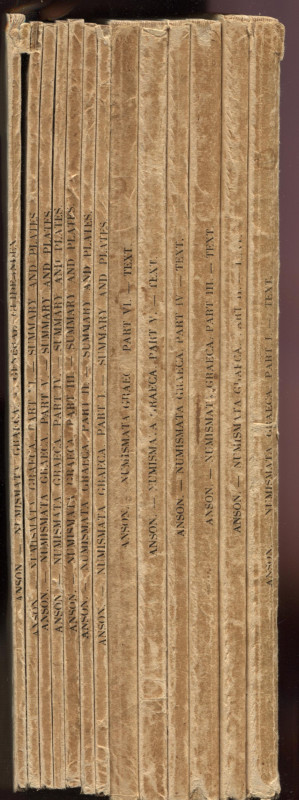 ANSON. — NUMISMATA GRAECA. GENERAL INDEX
ANSON. — NUMISMATA GRAECA PART VI. — SUMMARY AND PLATES
ANSON. — NUMISMATA GRAECA PART V. — SUMMARY AND PLATES
ANSON. — NUMISMATA GRAECA PART IV. — SUMMARY AND PLATES
ANSON. — NUMISMATA GRAECA PART III. — SUMMARY AND PLATES
ANSON. — NUMISMATA GRAECA PART II. — SUMMARY AND PLATES
ANSON. — NUMISMATA GRAECA PART I. — SUMMARY AND PLATES
ANSON. NUMISMATA GRAEC PART VI. — TEXT
ANSON. — NUMISMATA GRAECA PART V. — TEXT
ANSON. — NUMISMATA GRAECA PART IV — TEXT.
ANSON. — NUMISMATA GRAECA PART III. — TEXT
ANSON. — NUMISMATA GRAECA. PART
ANSON. NUMISMATA GRAECA PART I. — TEXT